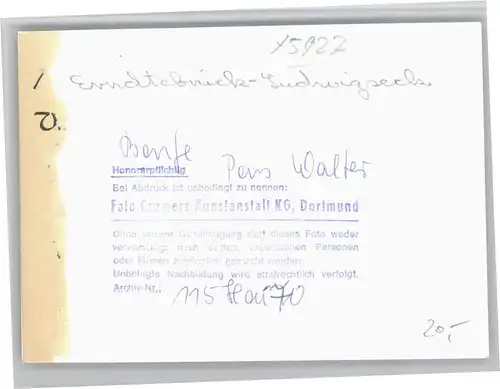 x5927
/ Erndtebrück-Ludwigseck
V.
Benfe
Pens Walter
Honorarpflichtig
Bei Abdruck ist unbedingt zu nennen:
Foto Cramers Kunstanstalt KG, Dortmund
Ohne unsere Genehmigung darf dieses Foto weder
vervielfältigt noch dritten Personen
oder Firmen zugänglich gemacht werden
Unbefugte Nachbildung wird strafrechtlich verfolgt.
Archiv-Nr.: 115 Hau 70
20,-